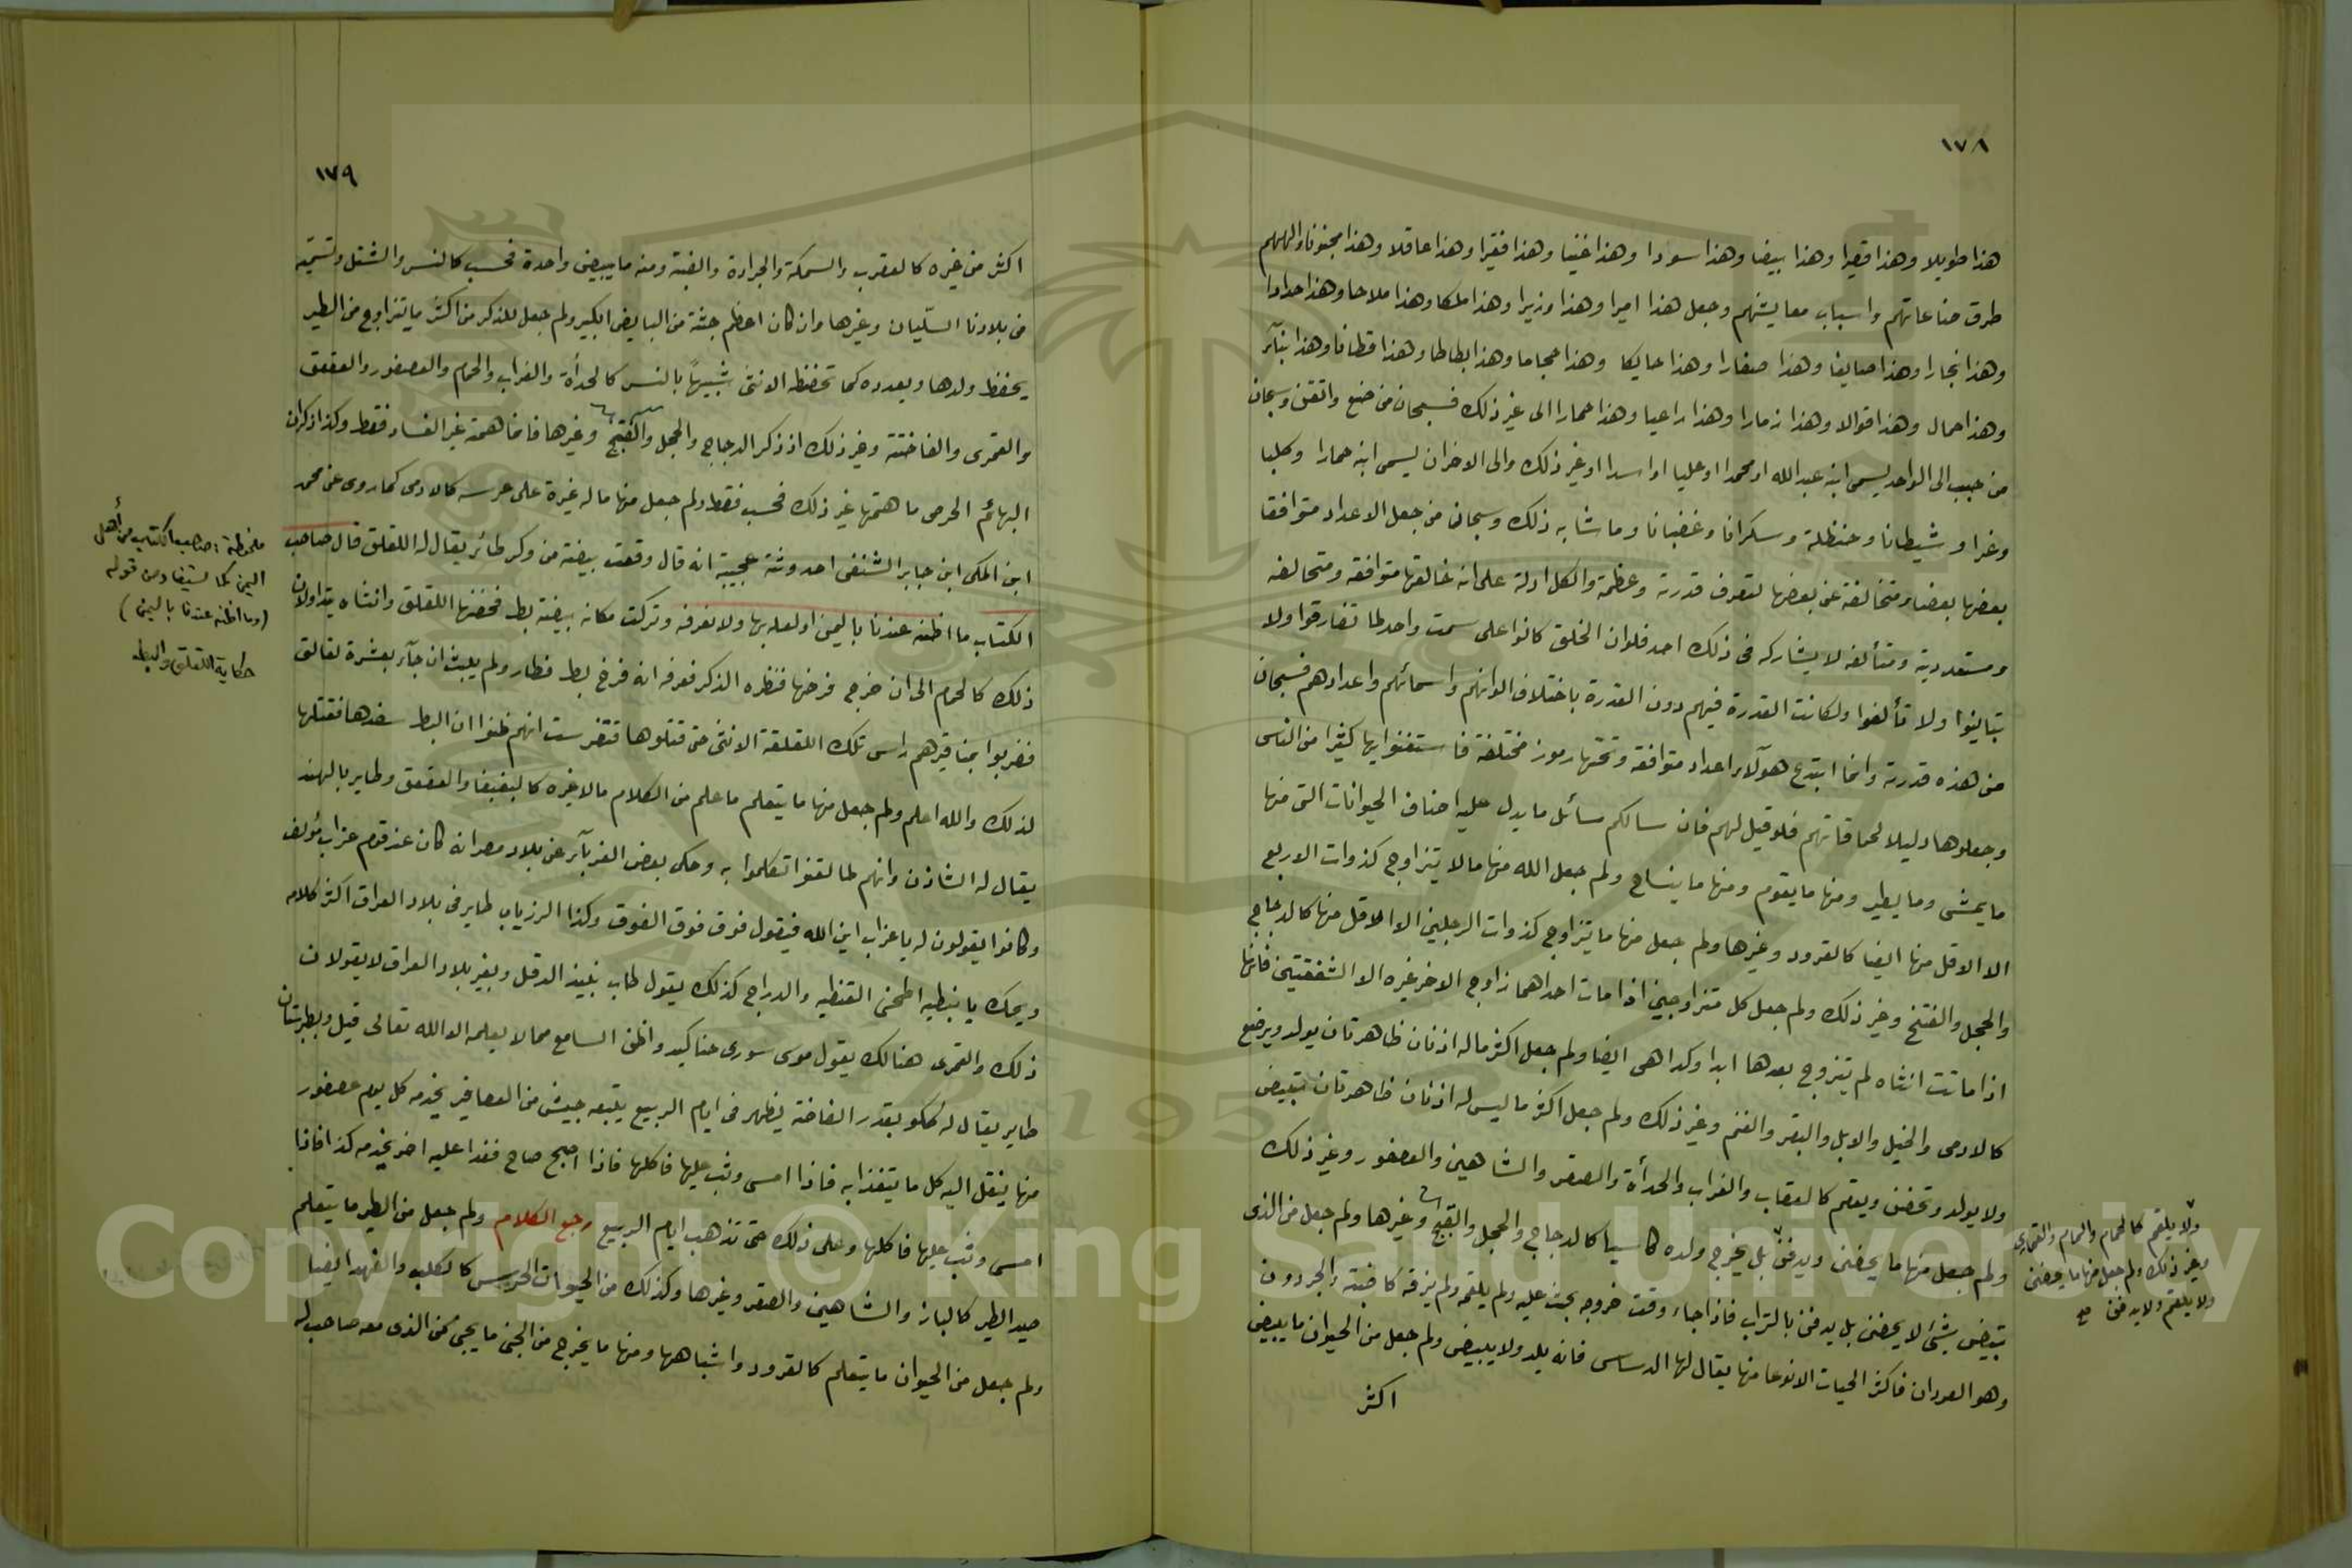 ١٧٨
هذا طويلا وهذا قصيرا وهذا بيضا وهذا سودا وهذا غنيا وهذا فقيرا وهذا عاقلا وهذا مجنونا والهمهم
طرق صناعاتهم واسباب معايشهم وجعل هذا اميرا وهذا وزيرا وهذا ملكا وهذا ملاحا وهذا حدادا
وهذا نجارا وهذا صايغا وهذا صفارا وهذا حايكا وهذا حجاما وهذا بطاطا وهذا قطانا وهذا بنآر
وهذا حمال وهذا قوالا وهذا زمارا وهذا راعيا وهذا حمارا الى غير ذلك فسبحان من صنع واتقن وسبحان
من حبب الى الواحد يسمى ابنه عبد الله او محمدا او عليا او اسدا او غير ذلك والى الاخر ان يسمى ابنه حمارا وكلبا
وغرا وشيطانا وحنظلة وسكرانا وغضبانا وما شابه ذلك وسبحان من جعل الاعداد متوافقا
بعضها بعضا ومتخالفة عن بعضها لتعرف قدرته وعظمة والكل ادلة على انه خالقها متوافقه ومتخالفه
ومستعدديه ومتألفه لا يشاركه في ذلك احد فلو ان الخلق كانوا على سمت واحد لما تفارقوا ولا
يتباينوا ولا تألفوا ولكانت القدرة فيهم دون القدرة باختلاف الوانهم واسمائهم واعدادهم فسبحان
من هذه قدرته وانما ابتدع هولآء اعداد متوافقه وتحتها رموز مختلفة فاستغنوا بها كثيرا من الناس
وجعلوها دليلا لحماقاتهم فلو قيل لهم فان سالكم سائل ما يدل عليه اصناف الحيوانات التي منها
ما يمشي وما يطير ومنها ما يقوم ومنها ما ينساح ولم جعل الله منها ما لا يتزاوج كذوات الاربع
الا الاقل منها ايضا كالقرود وغيرها ولم جعل منها ما يتزاوج كذوات الرجلين الا الاقل منها كالدجاج
والحجل والفتخ وغير ذلك ولم جعل كل متزاوجين اذا مات احداهما زاوج الاخر غيره الا الشفقتين فانها
اذا ماتت انثاه لم يتزوج بعدها ابدا وكذا هي ايضا ولم جعل اكثر ما له اذنان ظاهرتان يولد ويرضع
كالادمى والخيل والابل والبقر والغنم وغير ذلك ولم جعل اكثر ما ليس له اذنان ظاهرتان يبيض
ولا يولد وتحضن ويقلم كالعقاب والغراب والحدأة والصقر والشاهين والعصفور وغير ذلك
ولم جعل منها ما يحضن ويدفن بل يخرج ولده كاسيا كالدجاج والحجل والقبج وغيرها ولم جعل من الذى
تبيض بشئ لا يحضن بل يدفن بالتراب فاذا جاء وقت خروجه بحث عليه ولم يلقمه ولم يزقه كالضبة والجردون
وهو العودان فاكثر الحيات الا نوعا منها يقال لها الدساس فانه يلد ولا يبيض ولم جعل من الحيوان ما يبيض
اكثر
ولا يلقم كالحمام واليمام والقماري
وغير ذلك ولم جعل منها ما يحضن
ولا يلقم ولا يدفن صح
١٧٩
اكثر من غيره كالعقرب والسمكة والجرادة والضبة ومنه ما يبيض واحدة فحسب كالنسر والشتل وتسميه
في بلادنا السلّيان وغيرها وان كان اعظم جثة من البايض الكبير ولم جعل للذكر من اكثر ما يتزاوج من الطير
يحفظ ولدها ويعدده كما تحفظ الانثى شبيهًا بالنسر كالحدأة والغراب والحمام والعصفور والعقعق
والقمرى والفاختة وغير ذلك اذ ذكر الدجاج والحجل والفتخ وغيرها فانما همته غير الفساد فقط وكذا ذكران
البهائم الحرصى ما همتها غير ذلك فحسب فقط ولم جعل منها ماله غيرة على عرسه كالادمى كما روى عن محمد
ابن المكى ابن جابر الشنفى احدوثة عجيبة انه قال وقعت بيضة من وكر طائر يقال له اللقلق قال صاحب
الكتاب ما اظنه عندنا باليمن اولعله بها ولا نعرفه وتركت مكانه بيضة بط فحضنها اللقلق وانثاه يتداولان
ذلك كالحمام الى ان خرج فرخها فنظره الذكر فعرفه انه فرخ بط فطار ولم يلبث ان جآء بعشرة لقالق
فضربوا بمناقيرهم راس تلك اللقلقة الانثى حتى قتلوها فتفرست انهم ظنوا ان البط سفدها فقتلها
لذلك والله اعلم ولم جعل منها ما يتعلم ما علم من الكلام مالا غيره كالببغبغا والعقعق وطاير بالهند
يقال له الشاذن وانهم لما لقنوا تكلموا به وحكى بعض الغربآء عن بلاد مصر انه كان عند قوم غراب مؤلف
وكانوا يقولون له يا غراب اين الله فيقول فوق فوق الفوق وكذا الرزياب طاير في بلاد العراق اكثر كلامه
ويحك يا نبطيه اطحنى القنطيه والدراج كذلك يقول طاب نبيذ الدقل وبغير بلاد العراق لا يقولان
ذلك والقمرى هنالك يقول موسى سورى حناكيد واظن السامع مما لا يعلمه الا الله تعالى قيل وبطبرستان
طاير يقال له ككو بقدر الفاختة يظهر في ايام الربيع يتبعه جيش من العصافير يخدمه كل يوم عصفور
منها ينقل اليه كل ما يتغذا به فاذا امسى وثب عليها فاكلها فاذا اصبح صاح فغدا عليه اخر يخدمه كذا فاذا
امسى وثب عليها فاكلها وعلى ذلك حتى تذهب ايام الربيع رجع الكلام ولم جعل من الطير ما يتعلم
صيد الطير كالباز والشاهين والصقر وغيرها وكذلك من الحيوات الحرس كالكلب والفهد ايضا
ولم جعل من الحيوان ما يتعلم كالقرود واشباهها ومنها ما يخرج من الجنى ما يجئ من الذى معه صاحب له
ملحوظة: صاحب الكتاب من أهل
اليمن كما يستفاد من قوله
(وما اظنه عندنا باليمن)
حكاية اللقلق والبط